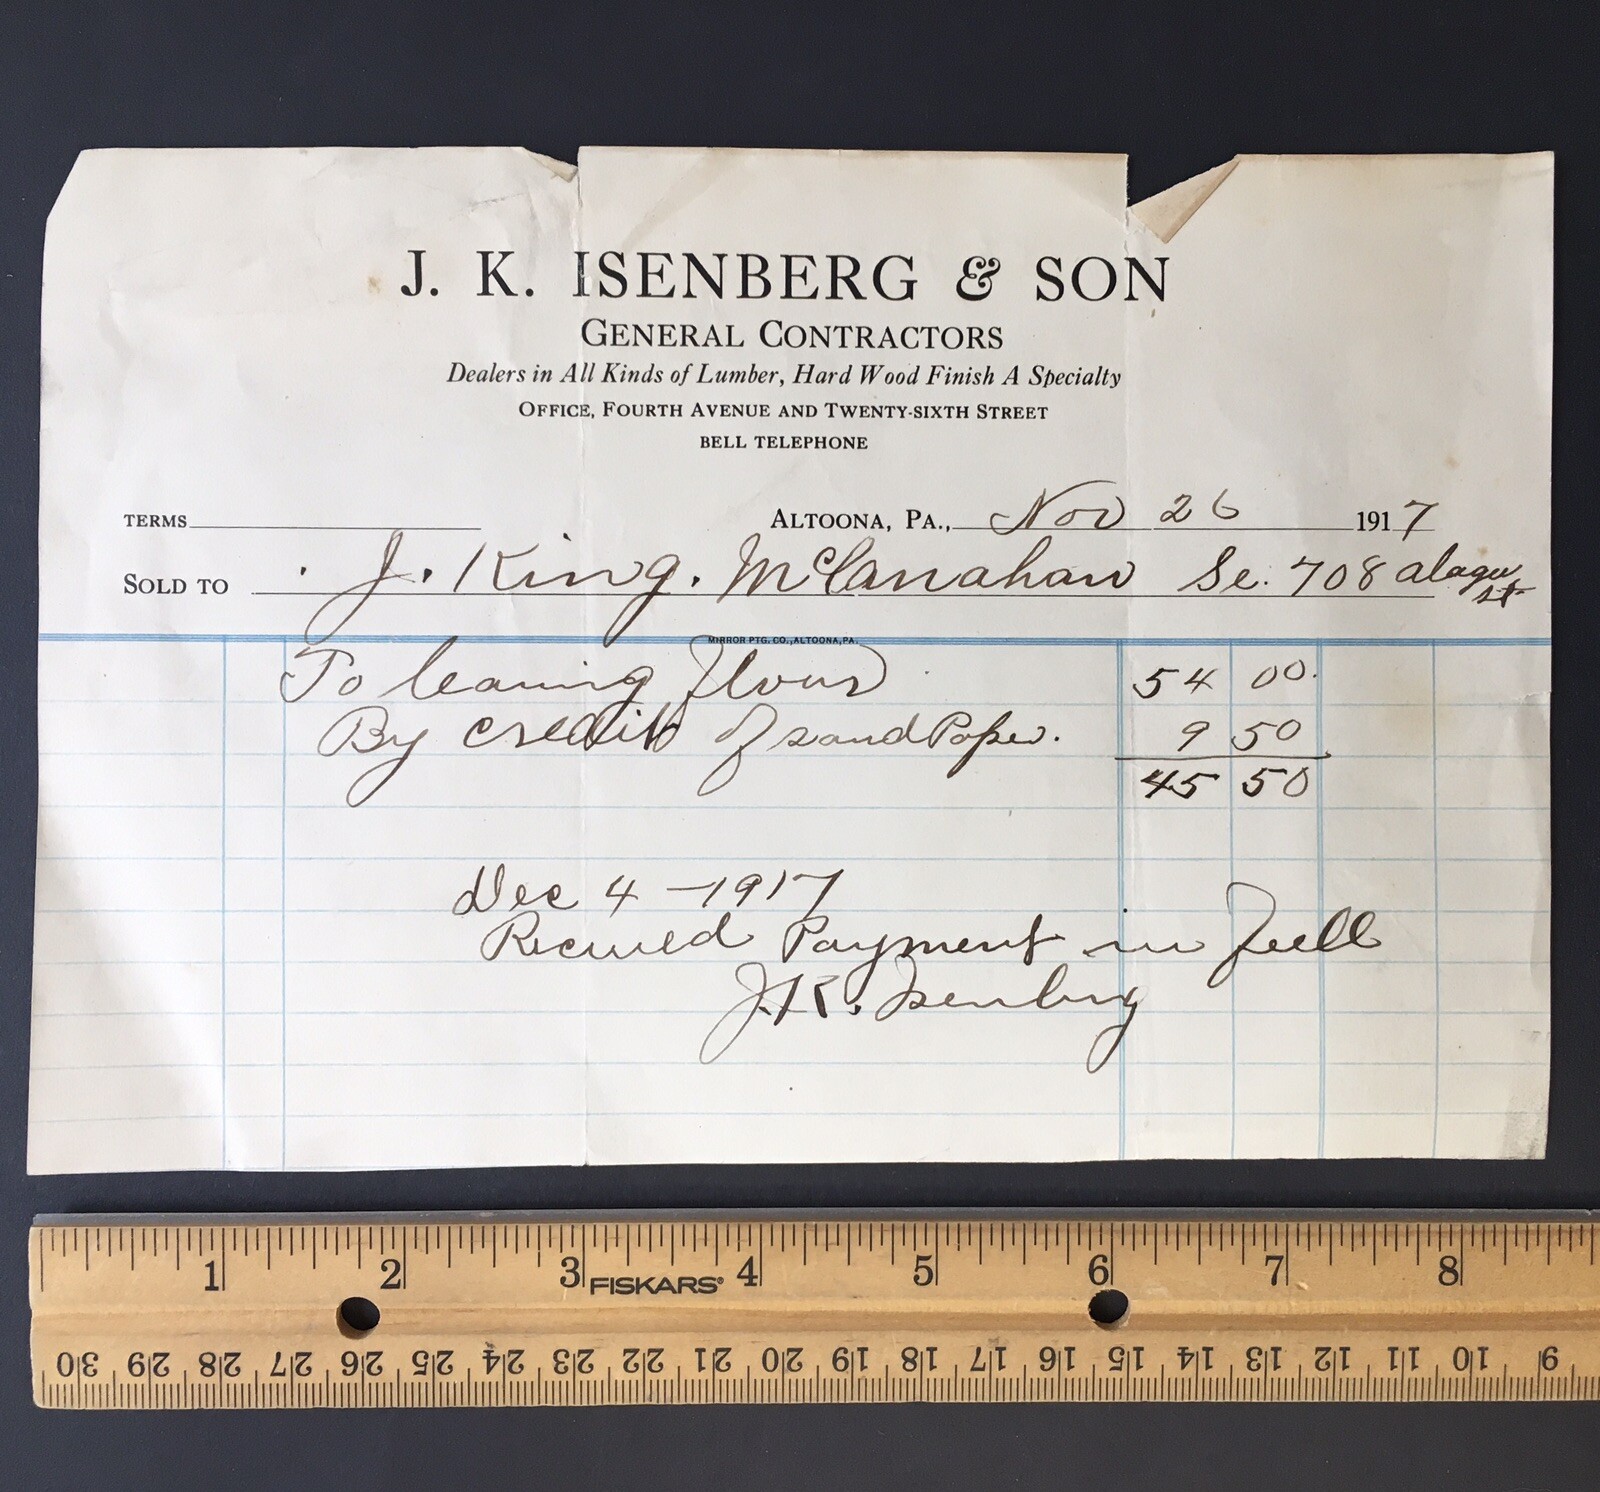 J. K. ISENBERG & SON
GENERAL CONTRACTORS
Dealers in All Kinds of Lumber, Hard Wood Finish A Specialty
OFFICE, FOURTH AVENUE AND TWENTY-SIXTH STREET
BELL TELEPHONE
TERMS ALTOONA, PA., Nov 26 1917
SOLD TO J. King. McClanahan Se. 708 alagu st
MIRROR PTG. CO., ALTOONA, PA.
To leaning flour 54 00.
By credit of sand Paper. 9 50
45 50
Dec 4 - 1917
Recived Payment in full
J.K. Isenberg
1 2 3 FISKARS® 4 5 6 7 8
30 29 28 27 26 25 24 23 22 21 20 19 18 17 16 15 14 13 12 11 10 9